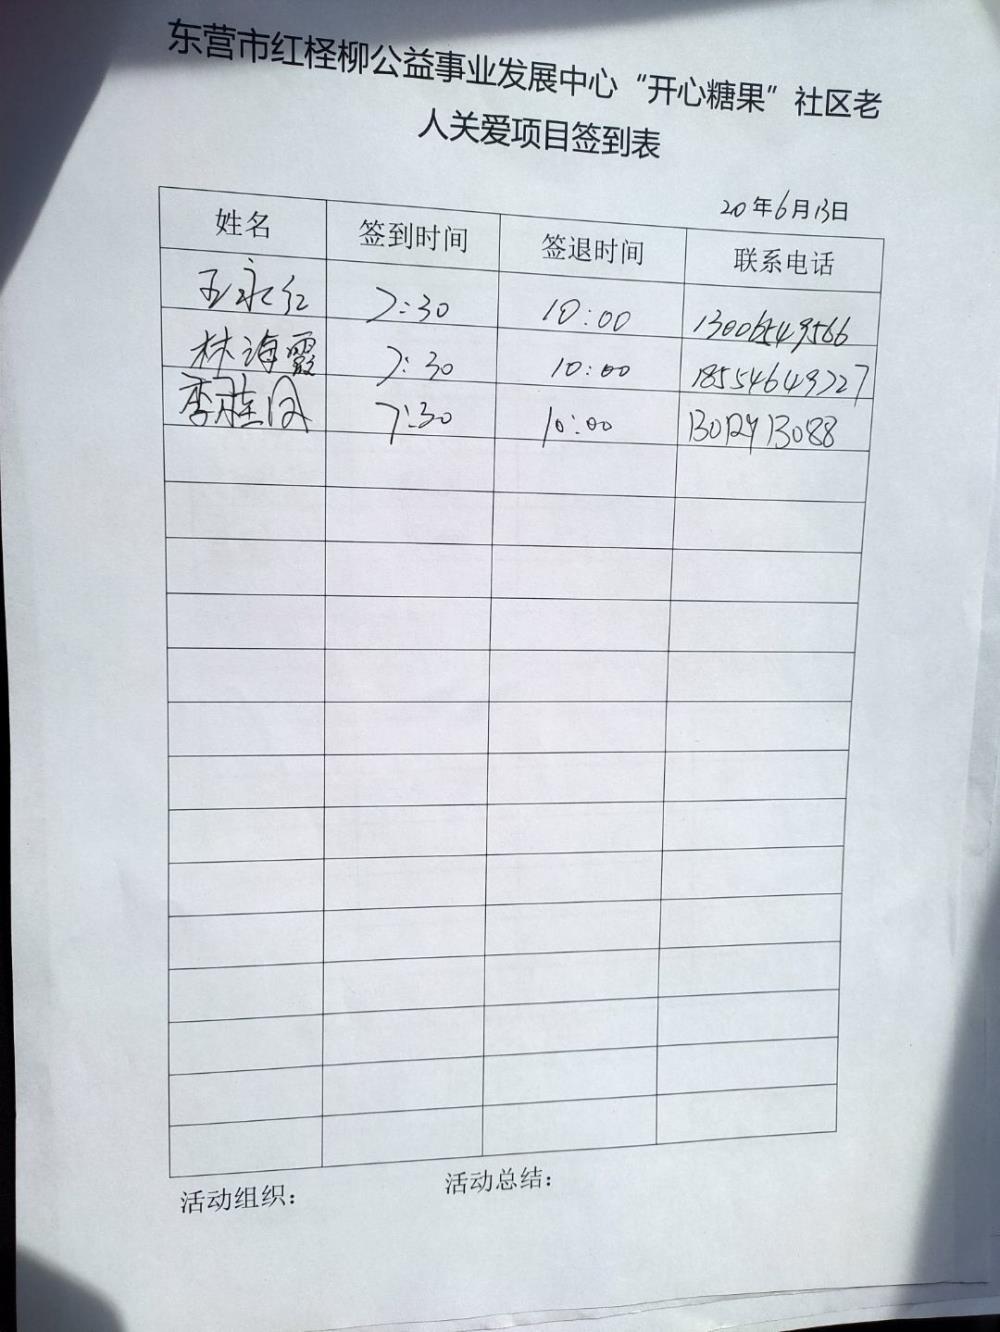 东营市红柽柳公益事业发展中心“开心糖果”社区老
人关爱项目签到表
20 年 6 月 13 日
姓名 签到时间 签退时间 联系电话
王永红 7:30 10:00 13006549566
林海霞 7:30 10:00 18554649727
李桂凤 7:30 10:00
活动组织： 活动总结：